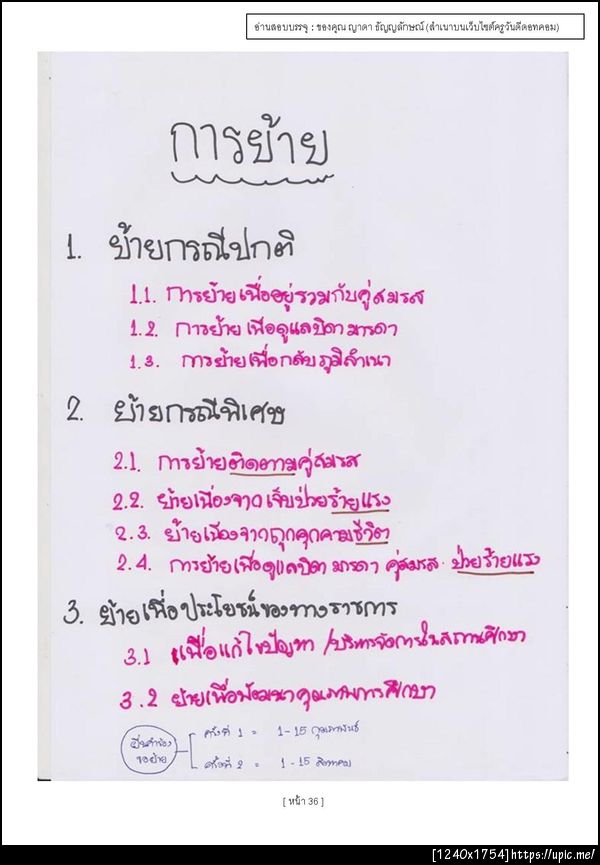 อ่านสอบบรรจุ : ของคุณ ญาดา ธัญญลักษณ์ (สำเนาบนเว็บไซต์ครูวันดีดอทคอม)
การย้าย
1. ย้ายกรณีปกติ
1.1. การย้ายเพื่ออยู่รวมกับคู่สมรส
1.2. การย้ายเพื่อดูแลบิดา มารดา
1.3. การย้ายเพื่อกลับภูมิลำเนา
2. ย้ายกรณีพิเศษ
2.1. การย้ายติดตามคู่สมรส
2.2. ย้ายเนื่องจากเจ็บป่วยร้ายแรง
2.3. ย้ายเนื่องจากถูกคุกคามชีวิต
2.4. การย้ายเพื่อดูแลบิดา มารดา คู่สมรส ป่วยร้ายแรง
3. ย้ายเพื่อประโยชน์ของทางราชการ
3.1 เพื่อแก้ไขปัญหา /บริหารจัดการในสถานศึกษา
3.2 ย้ายเพื่อพัฒนาคุณภาพการศึกษา
ยื่นคำร้อง
ขอย้าย
ครั้งที่ 1 = 1-15 กุมภาพันธ์
ครั้งที่ 2 = 1-15 สิงหาคม
[ หน้า 36 ]
[1240x1754]https://upic.me/